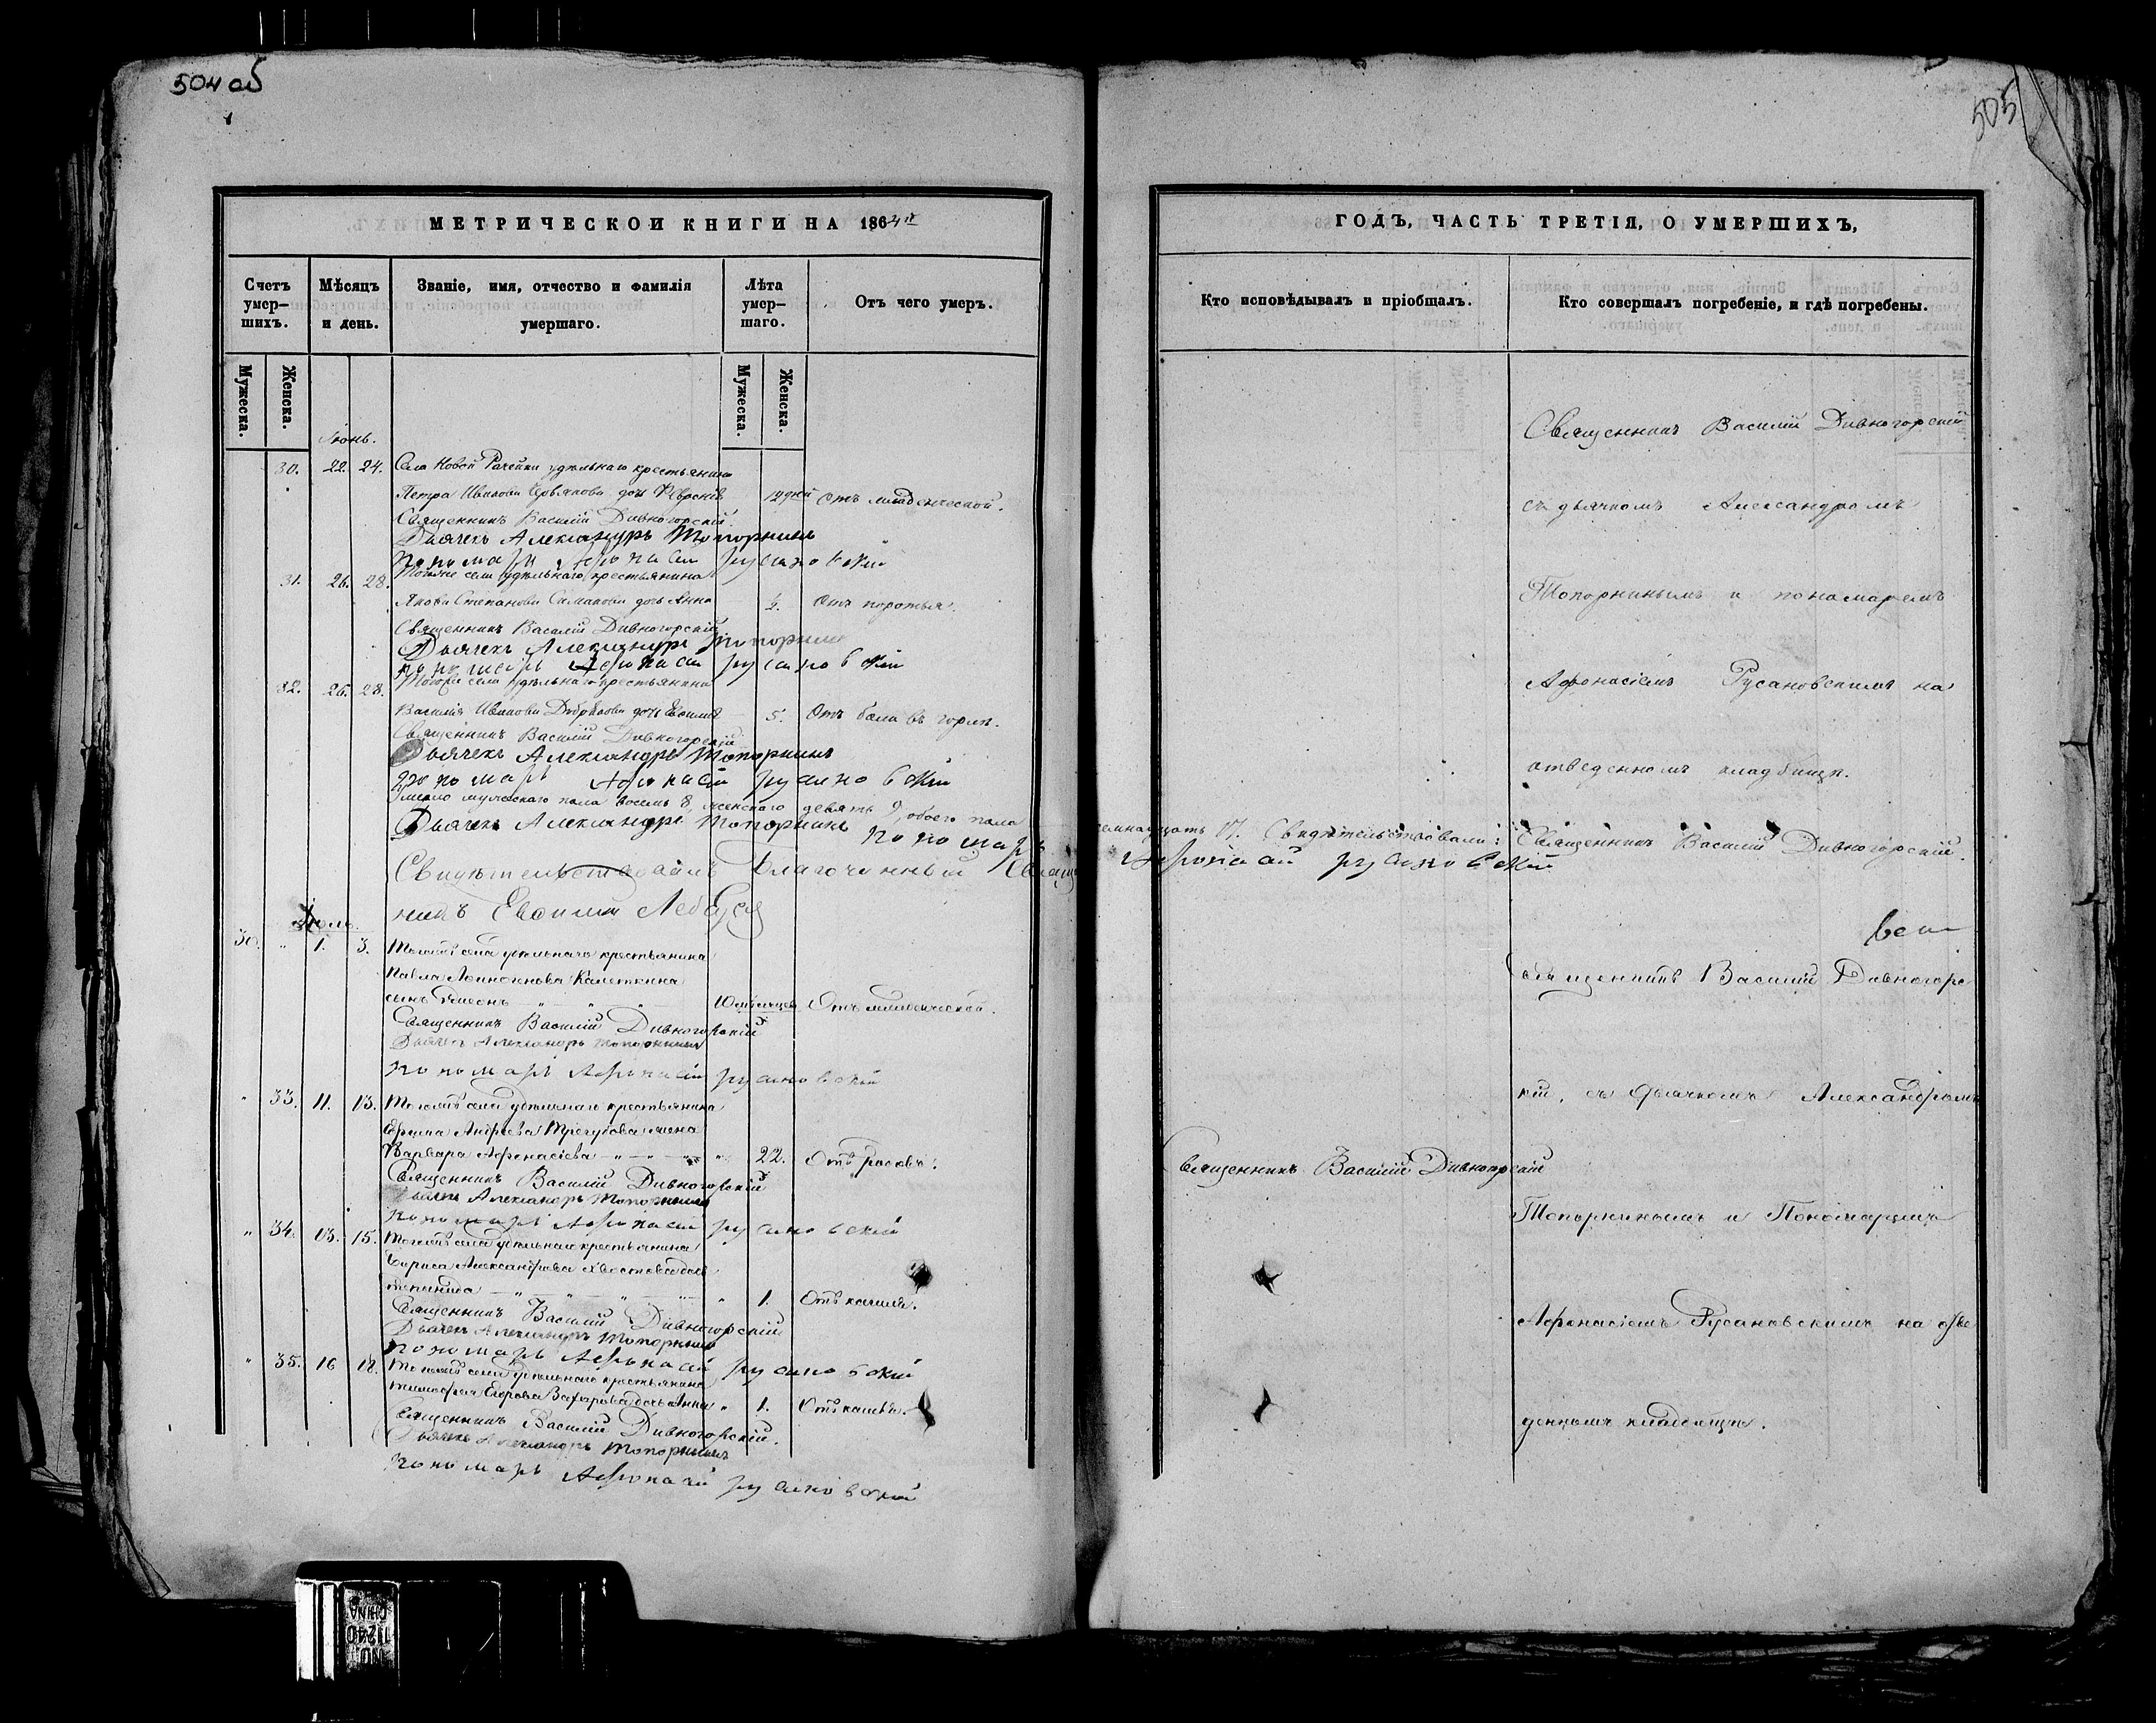 504 об
505
МЕТРИЧЕСКОЙ КНИГИ НА 1864й
ГОДЪ, ЧАСТЬ ТРЕТІЯ, О УМЕРШИХЪ,
Счетъ умер-шихъ.
Мѣсяцъ и день.
Званіе, имя, отчество и фамилія умершаго.
Лѣта умер-шаго.
Отъ чего умеръ.
Кто исповѣдывалъ и пріобщалъ.
Кто совершалъ погребеніе, и гдѣ погребены.
Мужеска.
Женска.
Мужеска.
Женска.
Іюнь.
30. 22. 24. Села Новой Рачейки удѣльнаго крестьянина
Петра Иванова дочь Февронія 12 дней Отъ младенческой.
Священникъ Василій Дивногорскій.
Дьячекъ Александръ Топорнинъ
Пономарь Афонасій Русановскій
31. 26. 28. Тогоже села удѣльнаго крестьянина
Якова Степанова Симакова дочь Анна ½. Отъ
Священникъ Василій Дивногорскій
Дьячекъ Александръ Топорнинъ
Пономарь Афонасій Русановскій
32. 26. 28. Тогоже села удѣльнаго крестьянина
Василія Иванова дочь 5. Отъ боли въ горлѣ.
Священникъ Василій Дивногорскій
Дьячекъ Александръ Топорнинъ
Пономарь Афонасій Русановскій
Умерло мужескаго пола восемь 8, женскаго девять 9, обоего пола
семнадцать 17. Свидѣтельствовали: Священникъ Василій Дивногорскій.
Дьячекъ Александръ Топорнинъ Пономарь
Афонасій Русановскій
Свидѣтельствовалъ Благочинный
Священникъ Василій Дивногорскій
съ дьячкомъ Александромъ
Топорнинымъ и пономаремъ
Афонасіемъ Русановскимъ на
отведенномъ кладбищѣ.
Іюль.
30. " 1. 3. Тогожъ села удѣльнаго крестьянина
Павла
сынъ 10 мѣсяцев Отъ младенческой.
Священникъ Василій Дивногорскій
Дьячекъ Александръ Топорнинъ
Пономарь Афонасій Русановскій
" 33. 11. 13. Тогожъ села удѣльнаго крестьянина
Ефима Андреева жена
Варвара Афонасіева 22. Отъ родовъ.
Священникъ Василій Дивногорскій
Священникъ Василій Дивногорскій
Дьячекъ Александръ Топорнинъ
Пономарь Афонасій Русановскій
" 34. 13. 15. Тогожъ села удѣльнаго крестьянина
Бориса Александрова Хвостова дочь
" 1. Отъ кашля.
Священникъ Василій Дивногорскій
Дьячекъ Александръ Топорнинъ
Пономарь Афонасій Русановскій
" 35. 16 18. Тогожъ села удѣльнаго крестьянина
Тимофея Егорова Захарова дочь Анна " 1. Отъ кашля.
Священникъ Василій Дивногорскій.
Дьячекъ Александръ Топорнинъ
Пономарь Афонасій Русановскій
священникъ Василій Дивногорс
кій, съ дьячкомъ Александромъ
Топорнинымъ и Пономаремъ
Афонасіемъ Русановскимъ на отве
денномъ кладбищѣ.